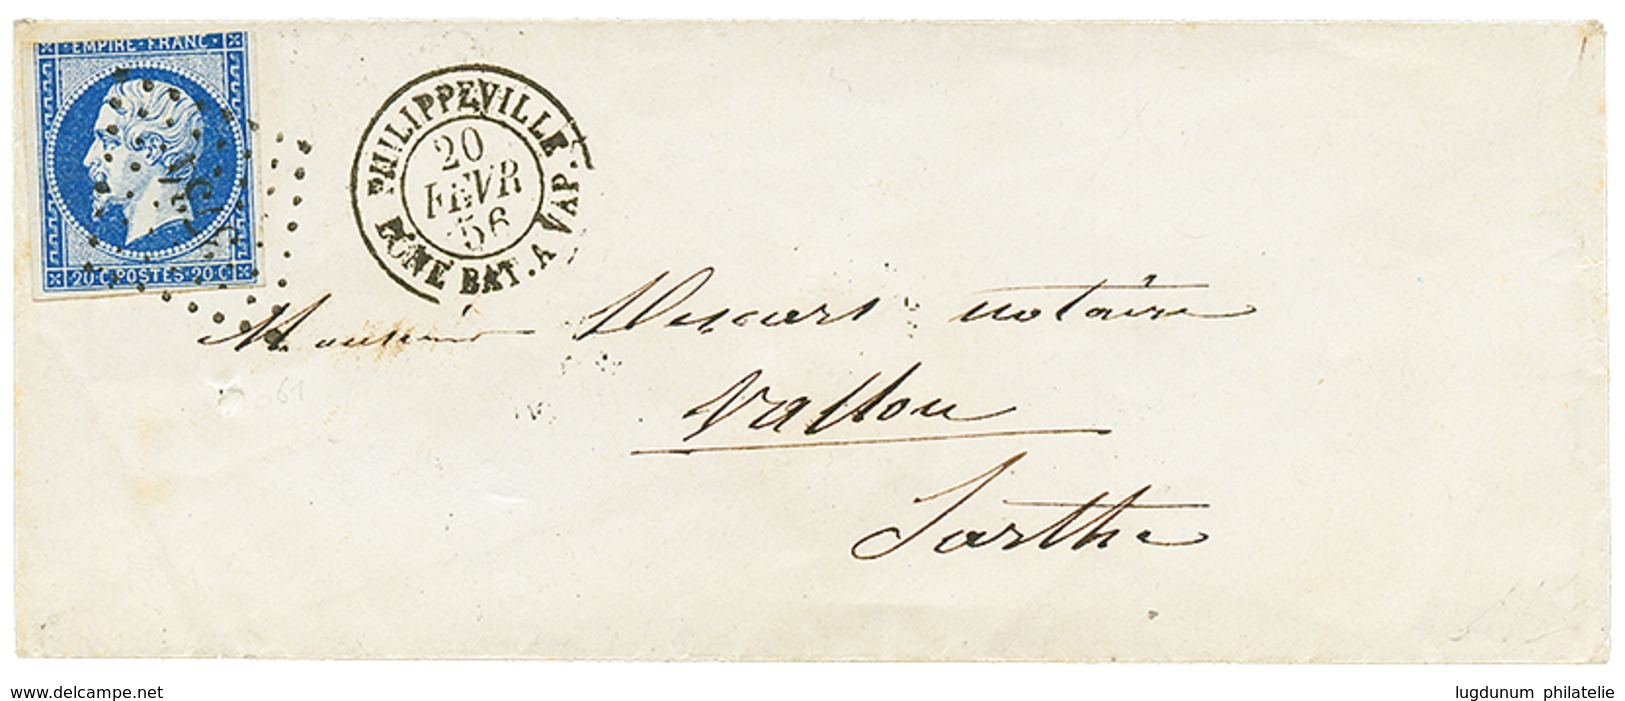 EMPIRE FRANC
20 C POSTES 20 C
PHILIPPEVILLE
20
FEVR
56
BONE BAT. A VAP.
Monsieur Descars notaire
61
Vallon
Sarthe
www.delcampe.net
lugdunum philatelie